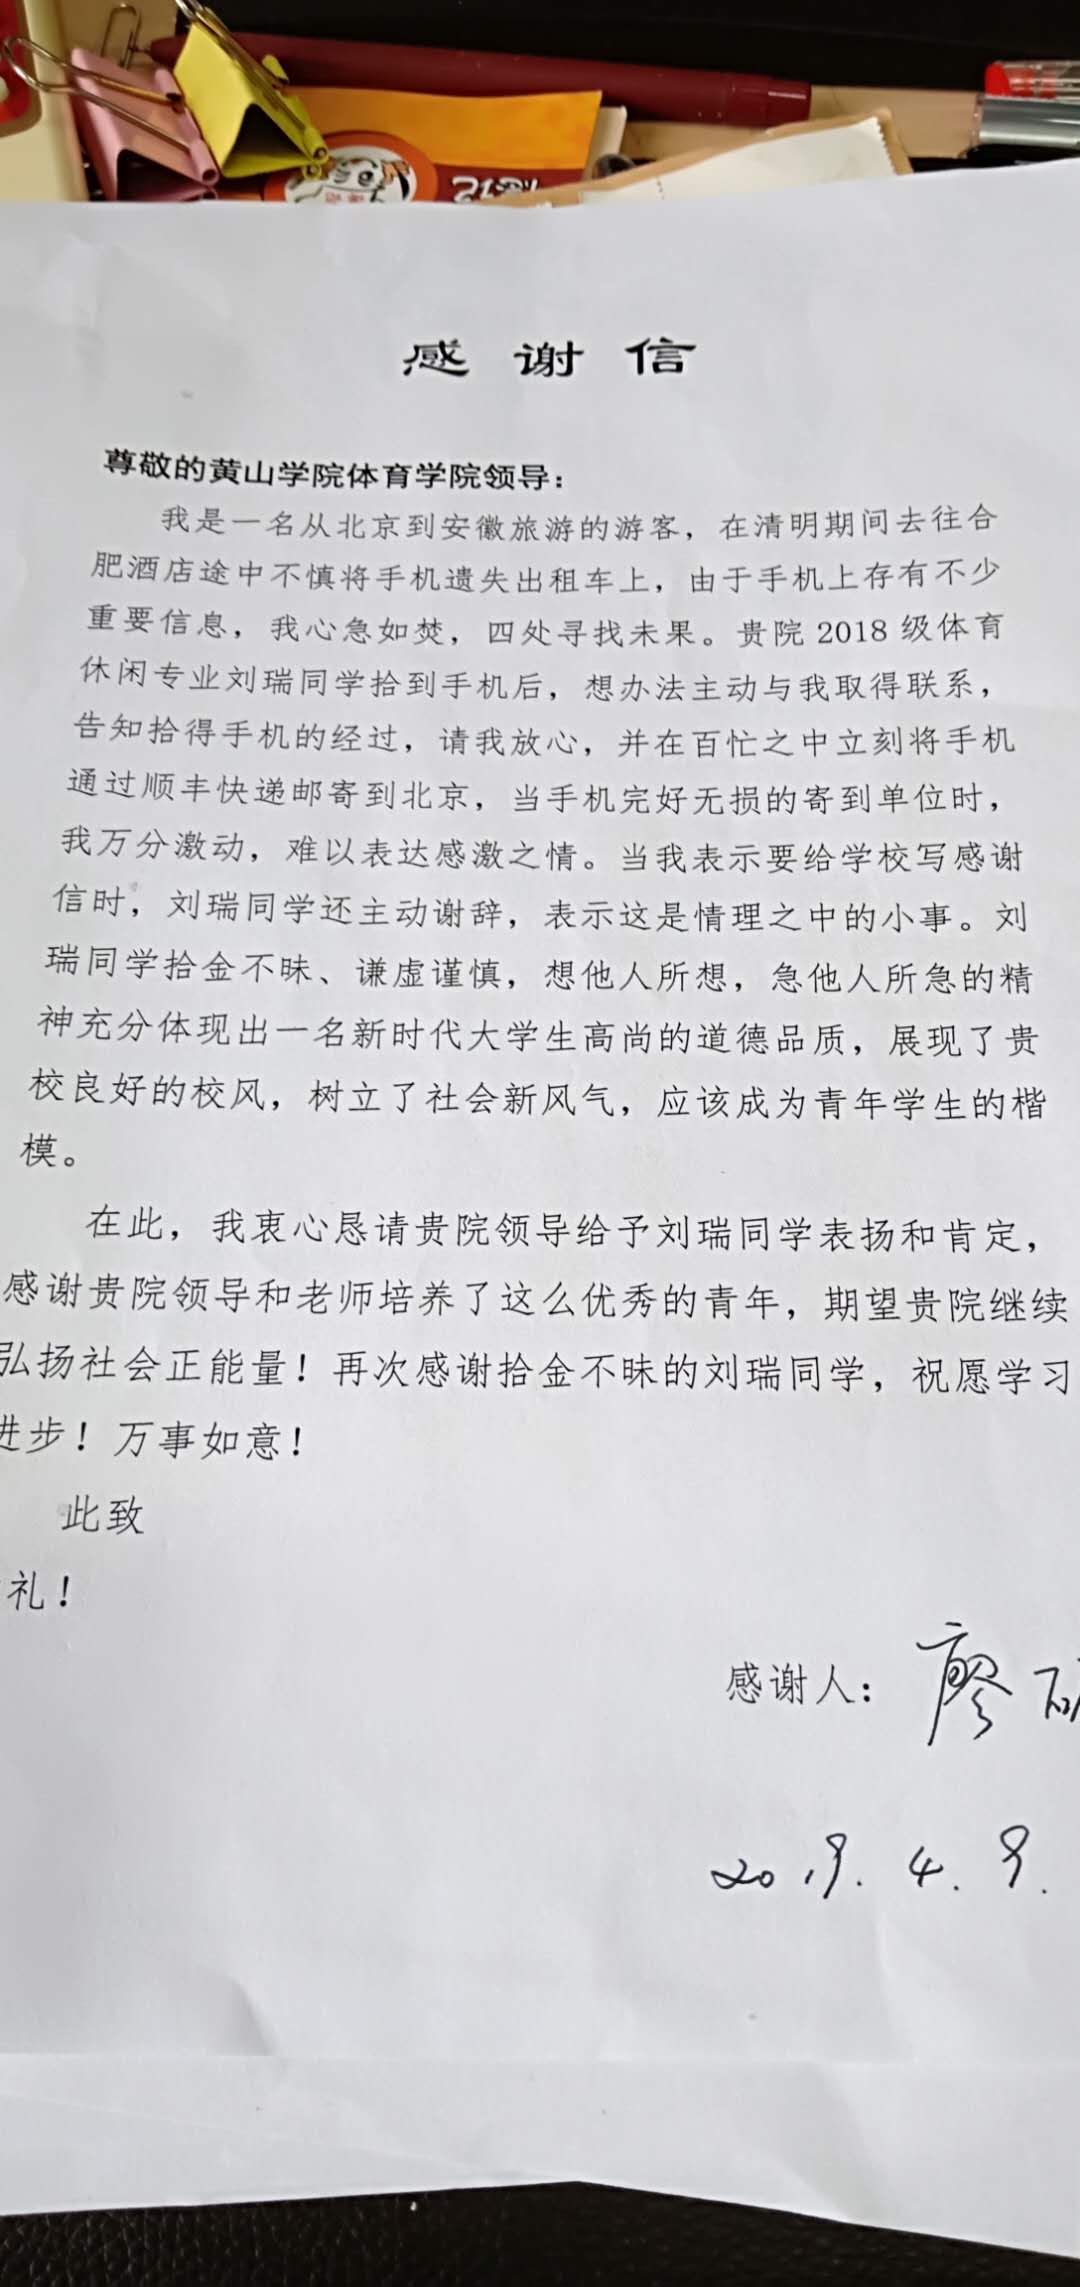 感谢信
尊敬的黄山学院体育学院领导：
我是一名从北京到安徽旅游的游客，在清明期间去往合
肥酒店途中不慎将手机遗失出租车上，由于手机上存有不少
重要信息，我心急如焚，四处寻找未果。贵院 2018 级体育
休闲专业刘瑞同学拾到手机后，想办法主动与我取得联系，
告知拾得手机的经过，请我放心，并在百忙之中立刻将手机
通过顺丰快递邮寄到北京，当手机完好无损的寄到单位时，
我万分激动，难以表达感激之情。当我表示要给学校写感谢
信时，刘瑞同学还主动谢辞，表示这是情理之中的小事。刘
瑞同学拾金不昧、谦虚谨慎，想他人所想，急他人所急的精
神充分体现出一名新时代大学生高尚的道德品质，展现了贵
校良好的校风，树立了社会新风气，应该成为青年学生的楷
模。
在此，我衷心恳请贵院领导给予刘瑞同学表扬和肯定，
感谢贵院领导和老师培养了这么优秀的青年，期望贵院继续
弘扬社会正能量！再次感谢拾金不昧的刘瑞同学，祝愿学习
进步！万事如意！
此致
礼！
感谢人：廖
2019.4.9.